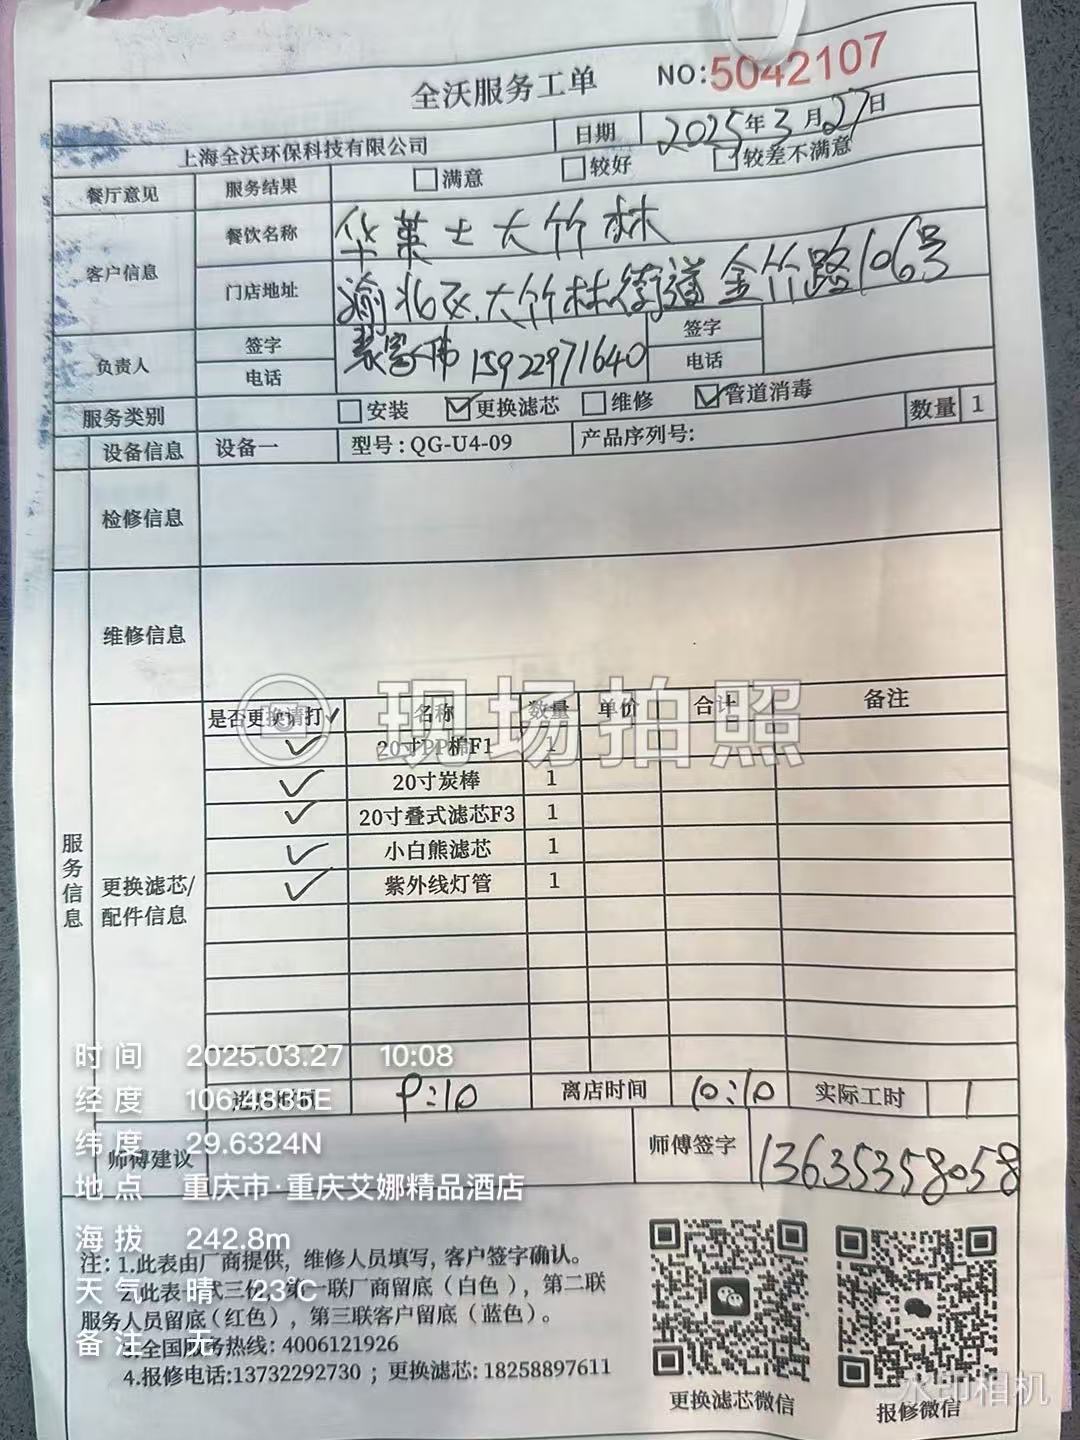 全沃服务工单 NO:5042107
上海全沃环保科技有限公司 日期 2025年3月27日
餐厅意见 服务结果 满意 较好 较差不满意
客户信息 餐饮名称 华莱士大竹林
门店地址 渝北区大竹林街道金竹路106号
负责人 签字 电话 15922971640 签字 电话
服务类别 安装 更换滤芯 维修 管道消毒 数量 1
设备信息 设备一 型号:QG-U4-09 产品序列号:
检修信息
维修信息
现场拍照
服务信息 更换滤芯/配件信息
是否更换请打✓ 名称 数量 单价 合计 备注
✓ 20寸PP棉F1 1
✓ 20寸炭棒 1
✓ 20寸叠式滤芯F3 1
✓ 小白熊滤芯 1
✓ 紫外线灯管 1
时间 2025.03.27 10:08
9:10 离店时间 10:10 实际工时 1
经度 106.4835E
纬度 29.6324N
师傅建议 师傅签字 13635358058
地点 重庆市·重庆艾娜精品酒店
海拔 242.8m
天气 晴 23℃
备注 无
注:1.此表由厂商提供,维修人员填写,客户签字确认。
2.此表 式三份,第一联厂商留底(白色),第二联
服务人员留底(红色),第三联客户留底(蓝色)。
3.全国服务热线:4006121926
4.报修电话:13732292730;更换滤芯:18258897611
更换滤芯微信 报修微信
水印相机